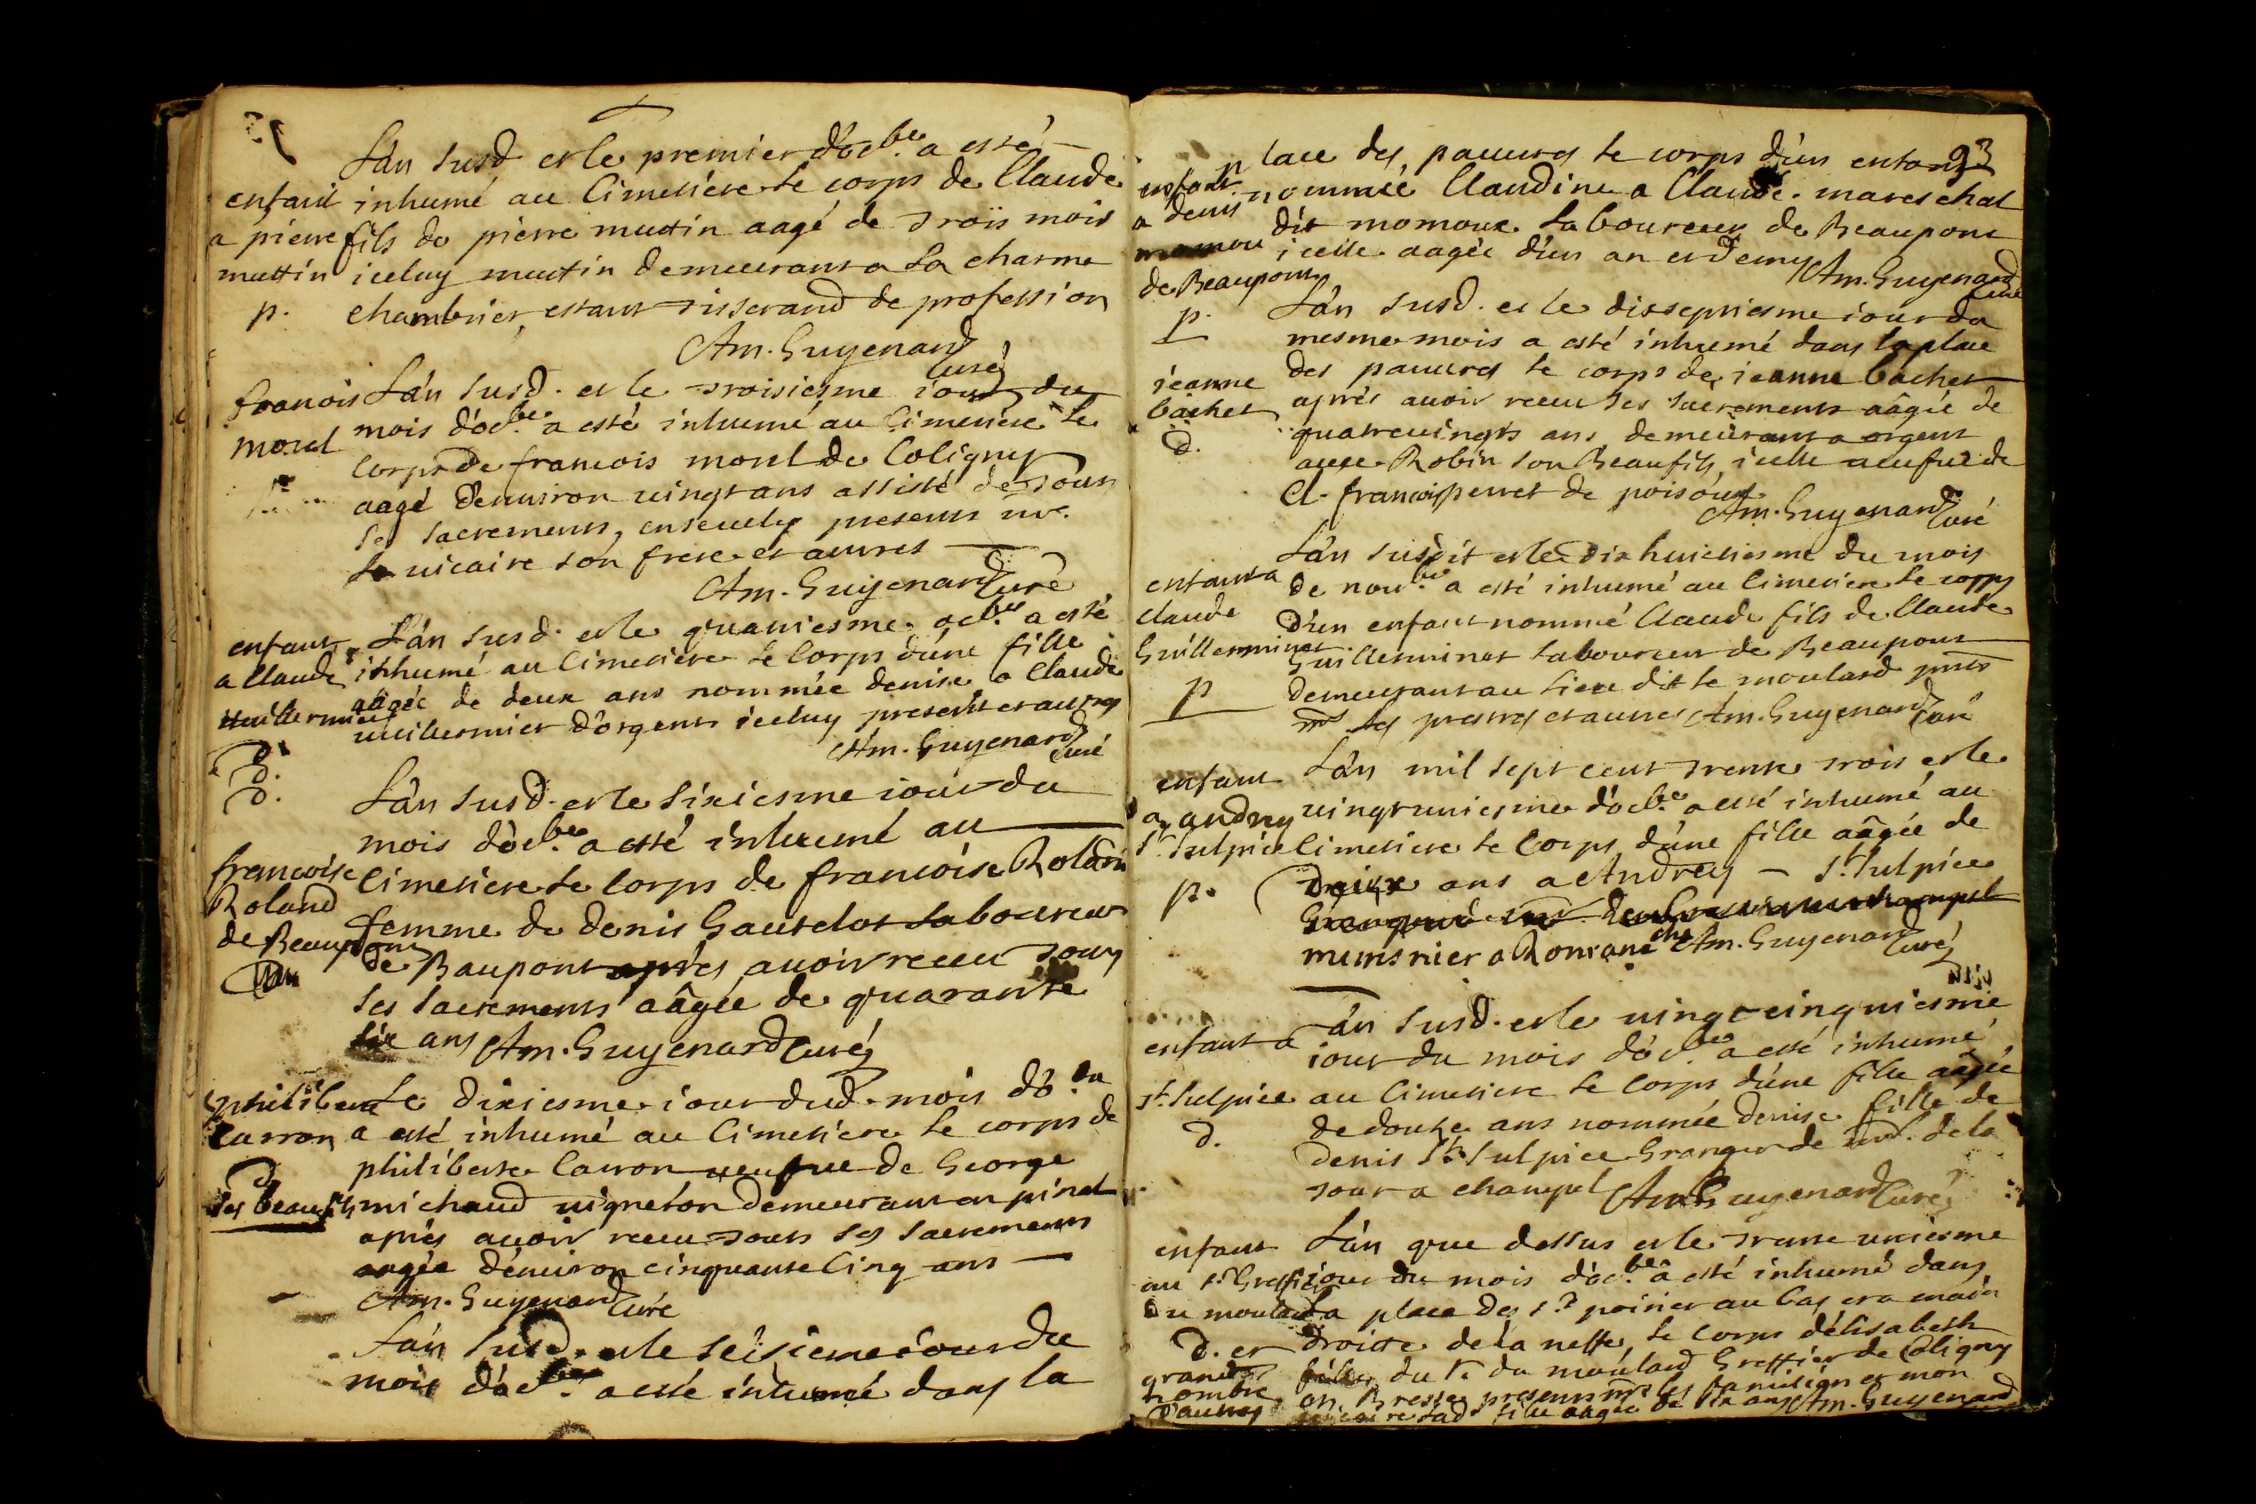 L'an susd. et le premier d'oc.bre a esté
enfant inhumé au Cimetiere le corps de Claude
a pierre fils de pierre muttin aagé de trois mois
muttin iceluy muttin demeurant a La charme
p. chambrier, estant tisserand de profession
Am. Guyenard
curé
francois L'an susd. et le troisiesme iour du
morel mois d'oc.bre a esté inhumé au Cimetiere le
Corps de francois morel de Coligny
aagé d'enuiron uingt ans assisté de tous
les sacrements, enseuely presents
le uicaire son frere et autres
Am. Guyenard Curé
enfant L'an susd. et le quatriesme oc.bre a esté
a Claude inhumé au Cimetiere le Corps d'une fille
uuillermier aagée de deux ans nommée denise a Claude
uuillermier d'orgent iceluy present et autres
d. Am. Guyenard
d. curé
L'an susd. et le sixiesme iour du
mois d'oc.bre a esté inhumé au
francoise Cimetiere le Corps de francoise Roland
Roland femme de denis Gautelot laboureur
de Beaupont de Baupont après auoir receu tous
les sacrements aâgée de quarante
six ans Am. Guyenard Curé
philiberte Le dixiesme iour dud. mois d'o.bre
Carron a esté inhumé au Cimetiere le corps de
philiberte Carron ueufue de George
les beaufils michaud uigneron demeurant en pinel
après auoir receu tous les sacrements
aagée d'enuiron cinquante Cinq ans
Am. Guyenard Curé
L'an susd. et le seisieme iour du
mois d'oc.bre a esté inhumé dans la
93
place des pauures le corps d'un enfant
enfant nommée Claudine a Claude mareschal
a denis dit momoux Laboureur de Beaupont
momou icelle aagée d'un an et demy Am. Guyenard
de Beaupont curé
p. L'an susd. et le disseptiesme iour du
mesme mois a esté inhumé dans la place
jeanne des pauures le corps de jeanne bachet
bachet après auoir receu les sacrements aâgée de
d. quatreuingts ans demeurant a orgent
auec Robin son Beaufils, icelle ueufue de
Cl. francois perret de poisoux
Am. Guyenard Curé
L'an susdit et le dix huictiesme du mois
enfant a de nou.bre a esté inhumé au Cimetiere le corps
Claude d'un enfant nommé Claude fils de Claude
Guillerminet Guillerminet laboureur de Beaupont
p demeurant au lieu dit le moulard
les prestres et autres Am. Guyenard Curé
enfant L'an mil sept cent trente trois et le
a andrey uingtuniesme d'oc.bre a esté inhumé au
st. Sulpice Cimetiere le Corps d'une fille aâgée de
p. Deux ans a Andrey st. Sulpice
munsnier a Romanèche Am. Guyenard Curé
L'an susd. et le uingtcinquiesme
enfant a iour du mois d'oc.bre a esté inhumé
st. Sulpice au Cimetiere le Corps d'une fille aagée
d. de douse ans nommée denise fille de
denis st. Sulpice Granger de de la
tour a champel Am. Guyenard Curé
enfant L'an que dessus et le trente uniesme
au sr. Greffier iour du mois d'oc.bre a esté inhumé dans
du moulard la place des sr. poirier au bas et a main
d. et droitte de la neffe, le Corps d'elisabeth
grand fille du sr. du moulard Greffier de Coligny
nombre en Bresse presents mrs les familiers et mon
d'autres uicaire lad. fille aagée de six ans Am. Guyenard